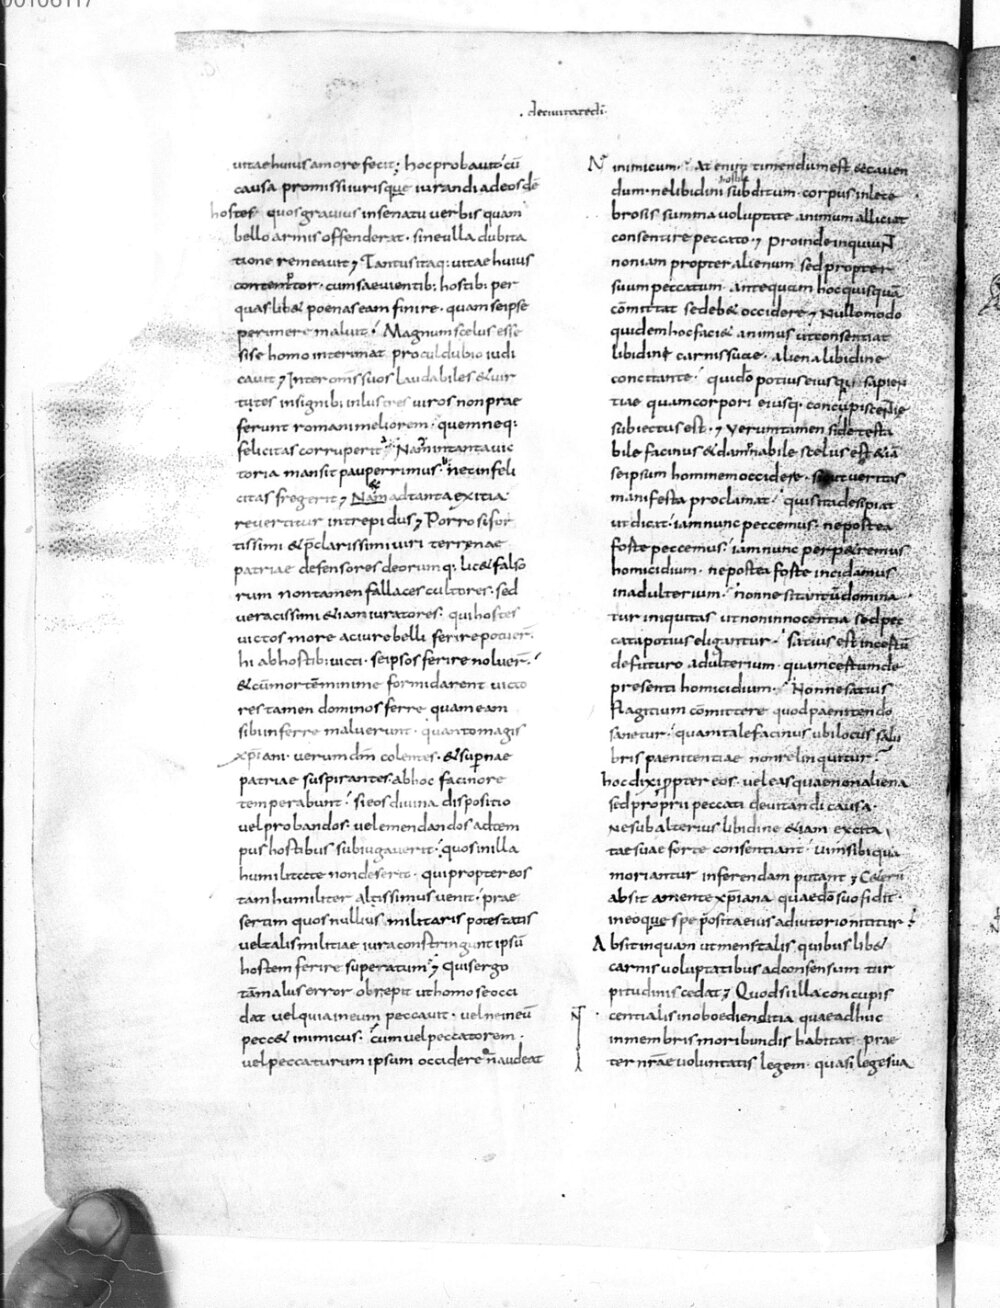 00106117
de ciuitate dī
uitae huius amore fecit; hoc probauit cū
causa promissi iurisque iurandi ad eosdē
hostes quos grauius in senatu uerbis quam
bello armis offenderat · sine ulla dubita
tione remeauit; Tantus itaq; uitae huius
contemptor · cum saeuientib; hostib; per
quaslib& poenas eam finire · quam se ipse
perimere maluit · Magnum scelus esse
si se homo interimat procul dubio iudi
cauit; Inter omīs suos laudabiles & uir
tutes insignib; inlustres uiros non prae
ferunt romani meliorem · quem neq;
felicitas corruperit · Nam in tanta uic
toria mansit pauperrimus · nec infeli
citas fregerit; Nam ad tanta exitia
reuertitur intrepidus; Porro si for
tissimi & p̄clarissimi uiri terrenae
patriae defensores deorumq; lic& falso
rum non tamen fallaces cultores · sed
ueracissimi & iam iuratores · qui hostes
uictos more ac iure belli ferire potuer̄
hi ab hostib; uicti · se ipsos ferire noluer̄
& cū mortem minime formidarent uicto
res tamen dominos ferre quam eam
sibi inferre maluerunt · quanto magis
xp̄iani · uerum dm̄ colentes · & supernae
patriae suspirantes ab hoc facinore
temperabunt · si eos diuina dispositio
uel probandos · uel emendandos ad tem
pus hostibus subiugauerit · quos in illa
humilitate non deserit · qui propter eos
tam humiliter altissimus uenit · prae
sertim quos nullius militaris potestatis
uel talis militiae iura constringunt ipsū
hostem ferire superatum; Quis ergo
tā malus error obrepit ut homo se occi
dat uel quia in eum peccauit · uel ne in eū
pecc& inimicus · cum uel peccatorem
uel peccaturum ipsum occidere n̄ audeat
inimicum · At enim timendum est & cauen
dum · ne libidini subditum · corpus inlece
hostili
brosissima uoluptate animum alliciat
consentire peccato; proinde inquiunt
non iam propter alienum sed propter
suum peccatum · antequam hoc quisquā
cōmittat se deb& occidere; Nullo modo
quidem hoc faci& animus ut consentiat
libidini carnis suae · aliena libidine
concitante · qui dō potius eiusq; sapien
tiae quam corpori eiusq; concupiscentiae
subiectus est · ; Uerumtamen si detesta
bile facinus & damnabile scelus est &iā
se ipsum hominem occidere · sicut ueritas
manifesta proclamat · quis ita desipiat
ut dicat · iam nunc peccemus · ne postea
forte peccemus · iam nunc perp&remus
homicidium · ne postea forte incidamus
in adulterium · nonne si tantū domina
tur iniquitas ut non innocentia sed pec
cata potius eligantur · satius est incertū
de futuro adulterium · quam certum de
presenti homicidium · Nonne satius
flagitium cōmittere quod paenitendo
sanetur · quam tale facinus ubi locus salu
bris paenitentiae non relinquitur ·
hoc dixi ꝓpter eos · uel eas quae non aliena
sed proprii peccati deuitandi causa ·
ne sub alterius libidine &iam excita
tae suae forte consentiant · uim sibi qua
moriantur inferendam putant; Ceterū
absit a mente xp̄iana quae dō suo fidit ·
in eoque spe posita eius adiutorio nititur ·
Absit inquam ut mens talis quibuslib&
carnis uoluptatibus ad consensum tur
pitudinis cedat; Quod si illa concupis
centialis inoboedientia quae adhuc
in membris moribundis habitat · prae
ter nr̄ae uoluntatis legem · quasi lege sua